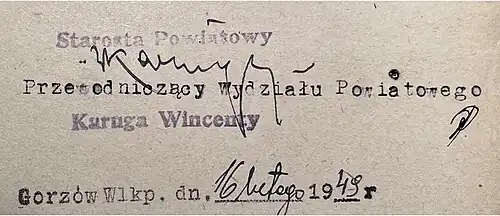 Starosta Powiatowy
Karuga
Przewodniczący Wydziału Powiatowego
Karuga Wincenty
Gorzów Wlkp. dn. 16 lutego 1949 r